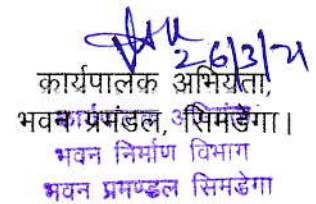 26/3/21
कार्यपालक अभियंता,
भवन प्रमंडल, सिमडेगा।
कार्यपालक
भवन निर्माण विभाग
भवन प्रमण्डल सिमडेगा